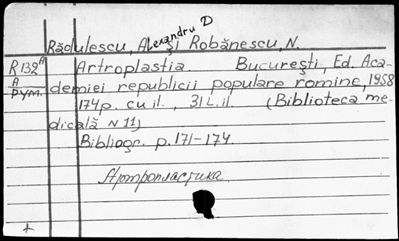 Rădulescu, Alexandru D și Robănescu, N.
R 132 A Artroplastia. București, Ed. Aca-
A demiei republicii populare romîne, 1958
Рум. 174 p. cu il., 31 L. il (Biblioteca me-
dicală N 11)
Bibliogr. p. 171-174.
Артропластика